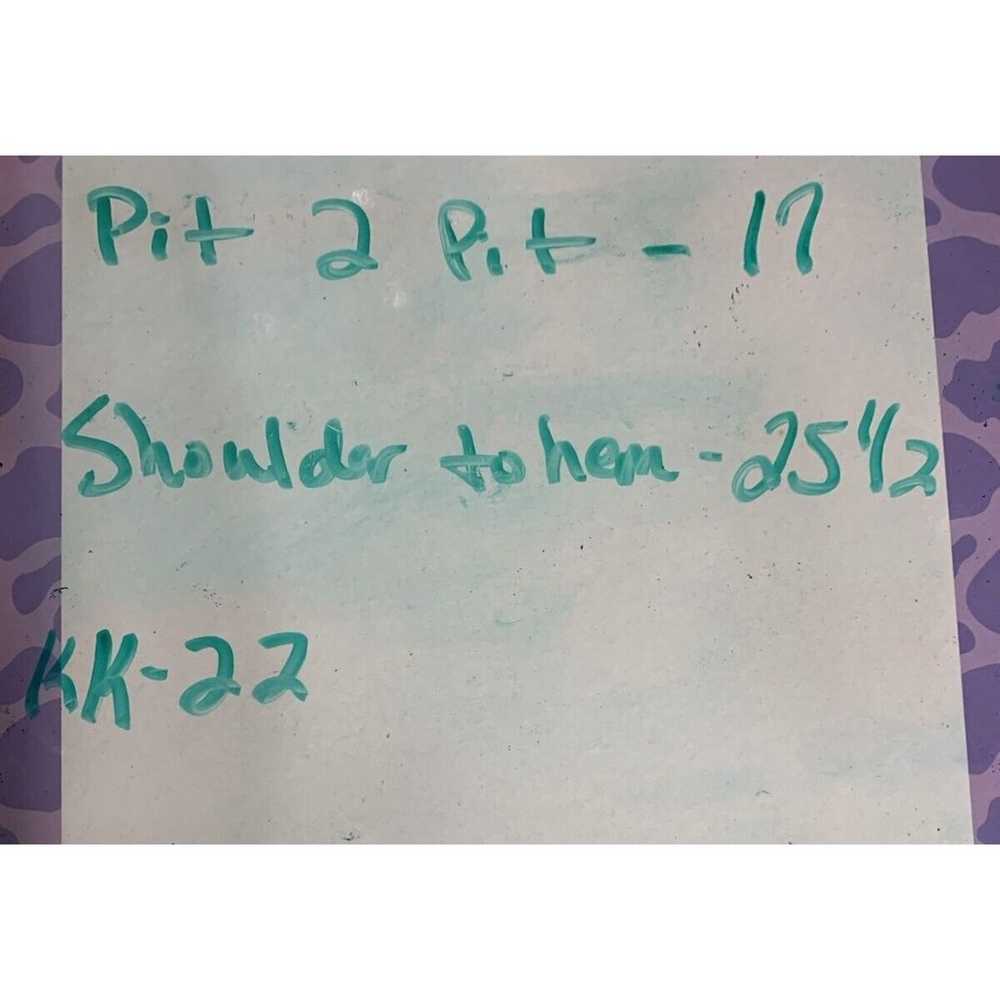 Pit 2 Pit - 17
Shoulder to hem - 25 1/2
KK-22